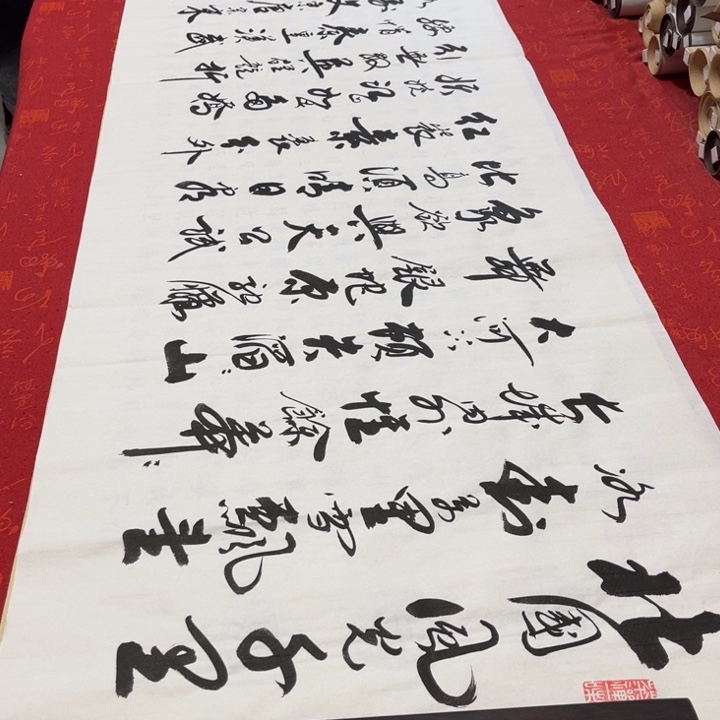 北國風光千里
冰封萬里雪飄望
長城內外惟餘莽莽
大河上下頓失滔滔山
舞銀蛇原馳蠟
象欲與天公試
比高須晴日看
紅裝素裹分外
妖嬈江山如此多嬌
引無數英雄競折
腰惜秦皇漢武
文采唐宗宋